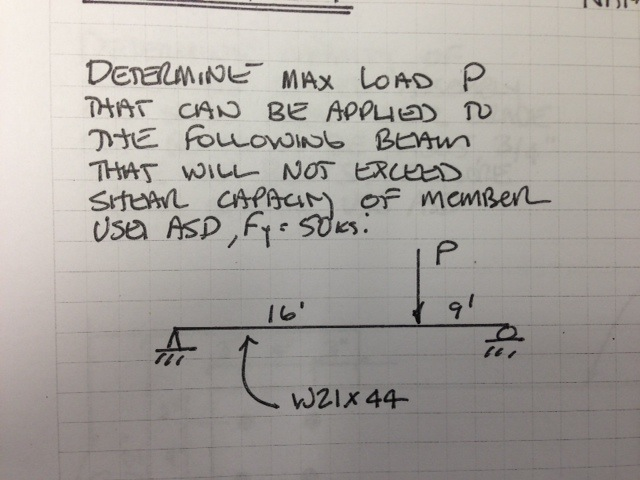 DETERMINE MAX LOAD P
THAT CAN BE APPLIED TO
THE FOLLOWING BEAM
THAT WILL NOT EXCEED
SHEAR CAPACITY OF MEMBER
USE ASD, Fy = 50ksi
P
16' 9'
W21x44